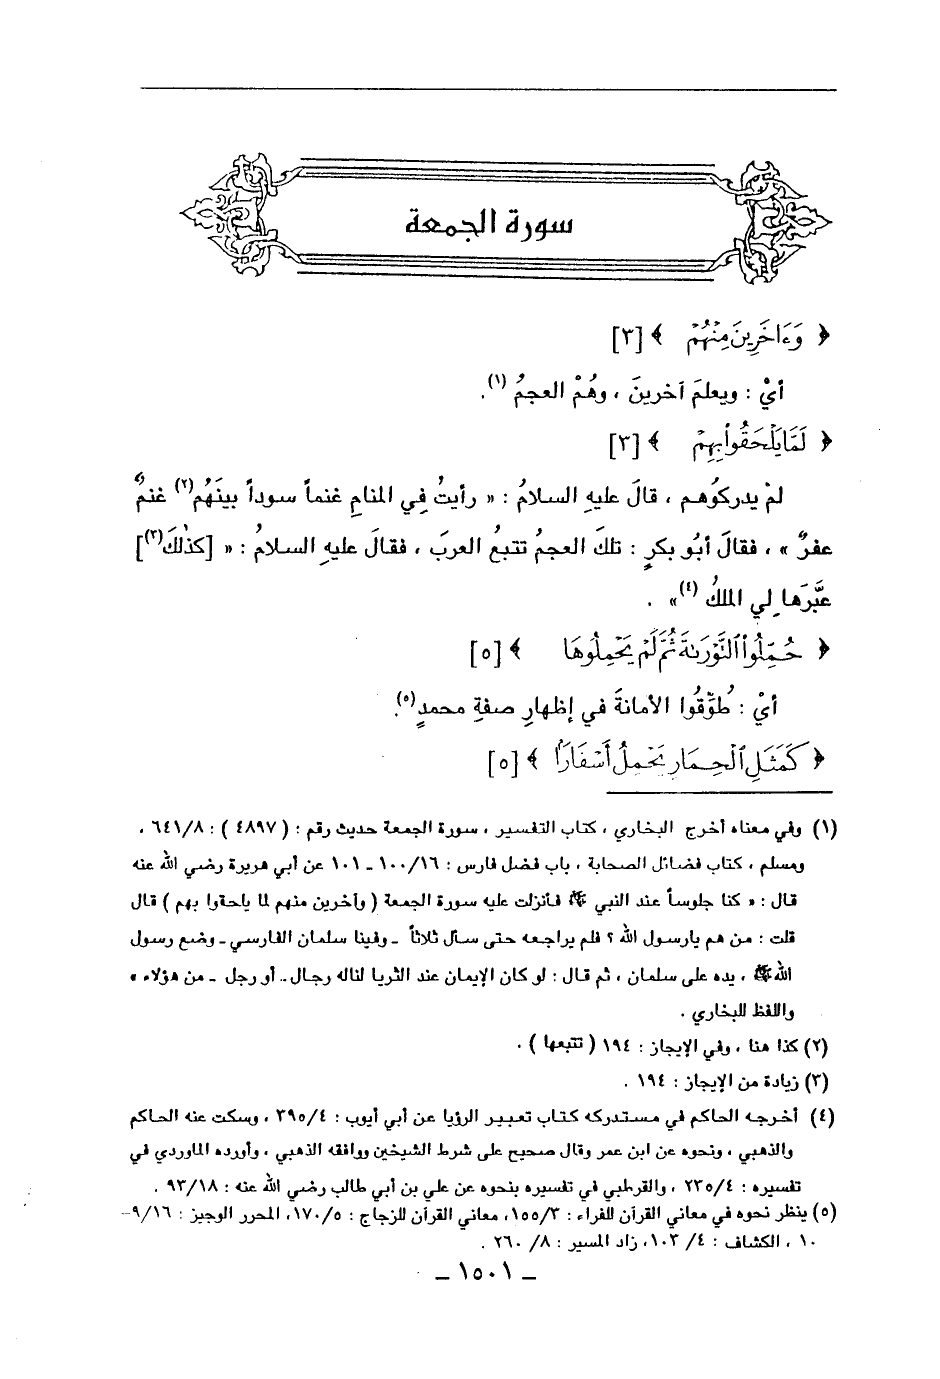 سورة الجمعة
﴿ وَءَاخَرِينَ مِنْهُمْ ﴾ [٣]
أيْ : ويعلمَ آخرينَ ، وهُمْ العجمُ (١).
﴿ لَمَّا يَلْحَقُوا۟ بِهِمْ ﴾ [٣]
لمْ يدركُوهم ، قالَ عليهِ السلامُ : « رأيتُ فِي المنامِ غنماً سوداً بينَهُم(٢) غنمٌ
عفرٌ » ، فقالَ أبُو بكرٍ : تلكَ العجمُ تتبعُ العربَ ، فقالَ عليهِ السلامُ : « [كذلكَ(٣)]
عبَّرَها لِي الملكُ (٤)» .
﴿ حُمِّلُوا۟ ٱلتَّوْرَىٰةَ ثُمَّ لَمْ يَحْمِلُوهَا ﴾ [٥]
أيْ : طُوِّقُوا الأمانةَ في إظهارِ صفةِ محمدٍ(٥).
﴿ كَمَثَلِ ٱلْحِمَارِ يَحْمِلُ أَسْفَارًا ﴾ [٥]
(١) وفي معناه أخرج البخاري ، كتاب التفسير ، سورة الجمعة حديث رقم : ( ٤٨٩٧ ) : ٦٤١/٨ ،
ومسلم ، كتاب فضائل الصحابة ، باب فضل فارس : ١٠٠/١٦ ـ ١٠١ عن أبي هريرة رضي الله عنه
قال : « كنا جلوساً عند النبي ﷺ فأنزلت عليه سورة الجمعة ( وآخرين منهم لما يلحقوا بهم ) قال
قلت : من هم يارسول الله ؟ فلم يراجعه حتى سأل ثلاثاً ـ وفينا سلمان الفارسي ـ وضع رسول
الله ﷺ ، يده على سلمان ، ثم قال : لو كان الإيمان عند الثريا لناله رجال ـ أو رجل ـ من هؤلاء »
واللفظ للبخاري .
(٢) كذا هنا ، وفي الإيجاز : ١٩٤ ( تتبعها ) .
(٣) زيادة من الإيجاز : ١٩٤ .
(٤) أخرجه الحاكم في مستدركه كتاب تعبير الرؤيا عن أبي أيوب : ٣٩٥/٤ ، وسكت عنه الحاكم
والذهبي ، ونحوه عن ابن عمر وقال صحيح على شرط الشيخين ووافقه الذهبي ، وأورده الماوردي في
تفسيره : ٢٣٥/٤ ، والقرطبي في تفسيره بنحوه عن علي بن أبي طالب رضي الله عنه : ٩٣/١٨ .
(٥) ينظر نحوه في معاني القرآن للفراء : ١٥٥/٣، معاني القرآن للزجاج : ١٧٠/٥، المحرر الوجيز : ٩/١٦-
١٠ ، الكشاف : ٤/ ١٠٣، زاد المسير : ٨/ ٢٦٠ .
ـ ١٥٠١ ـ